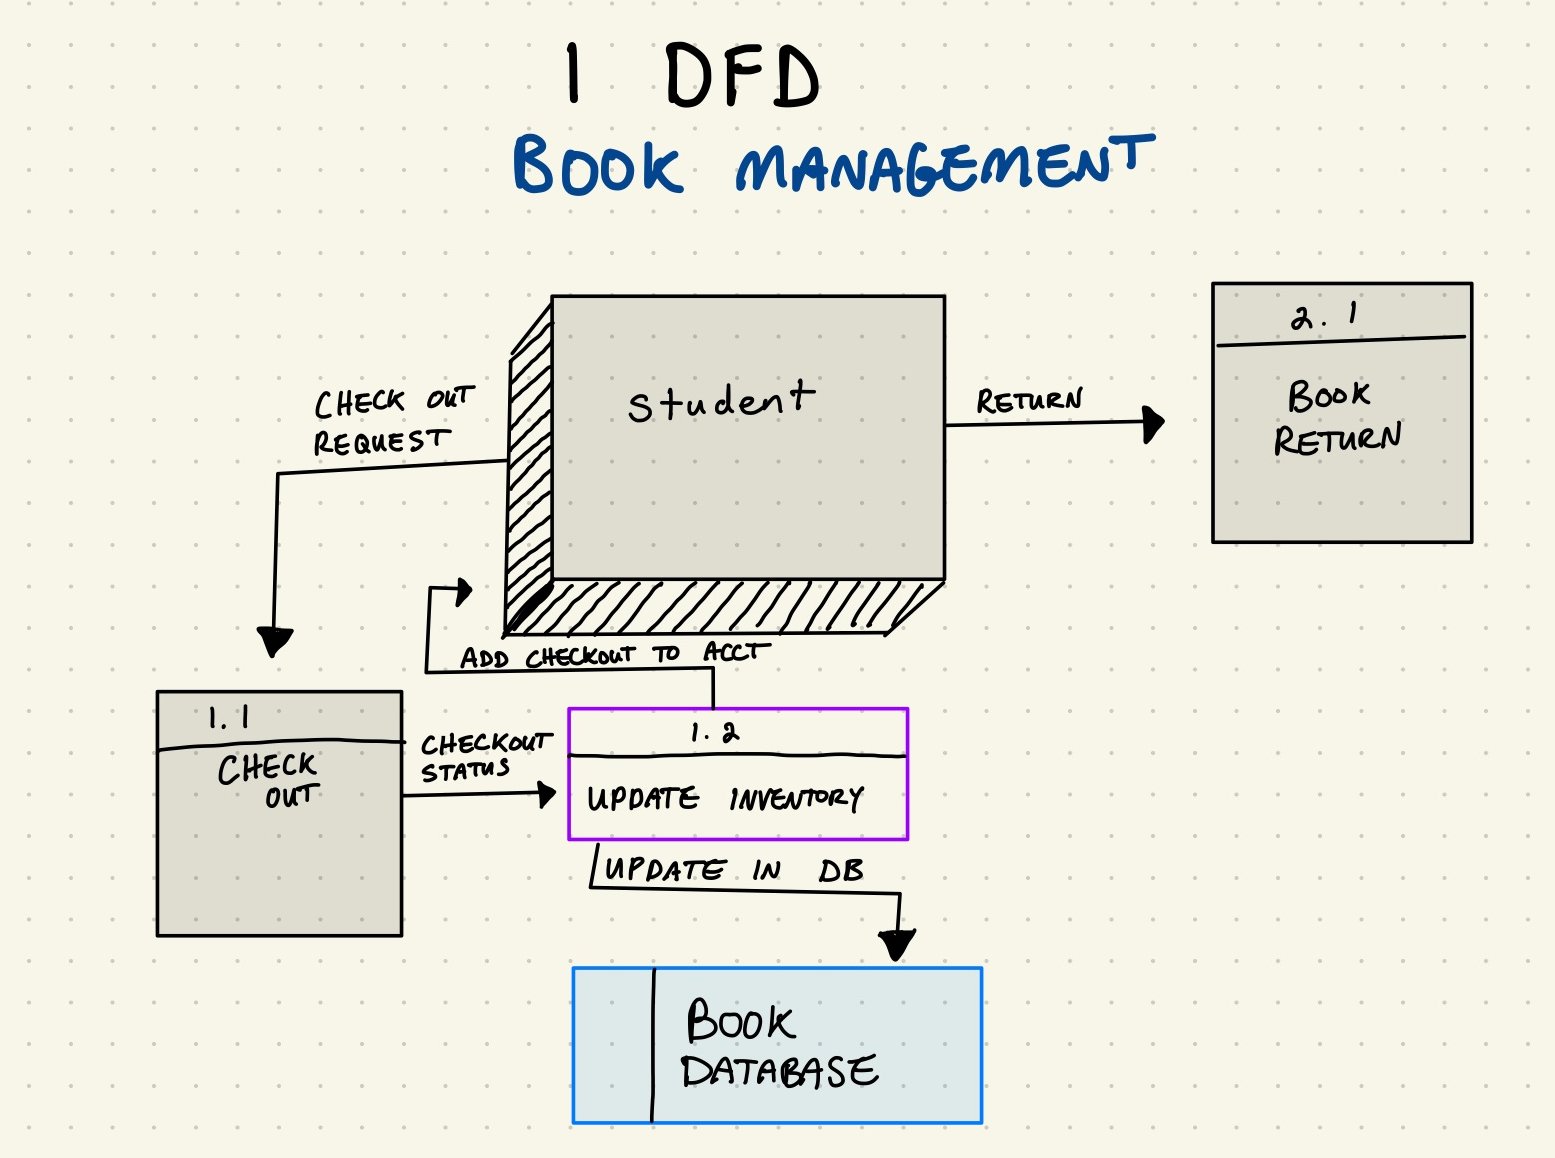 1 DFD
BOOK MANAGEMENT
2.1
BOOK
RETURN
student
RETURN
CHECK OUT
REQUEST
ADD CHECKOUT TO ACCT
1.1
CHECK
OUT
CHECKOUT
STATUS
1.2
UPDATE INVENTORY
UPDATE IN DB
BOOK
DATABASE